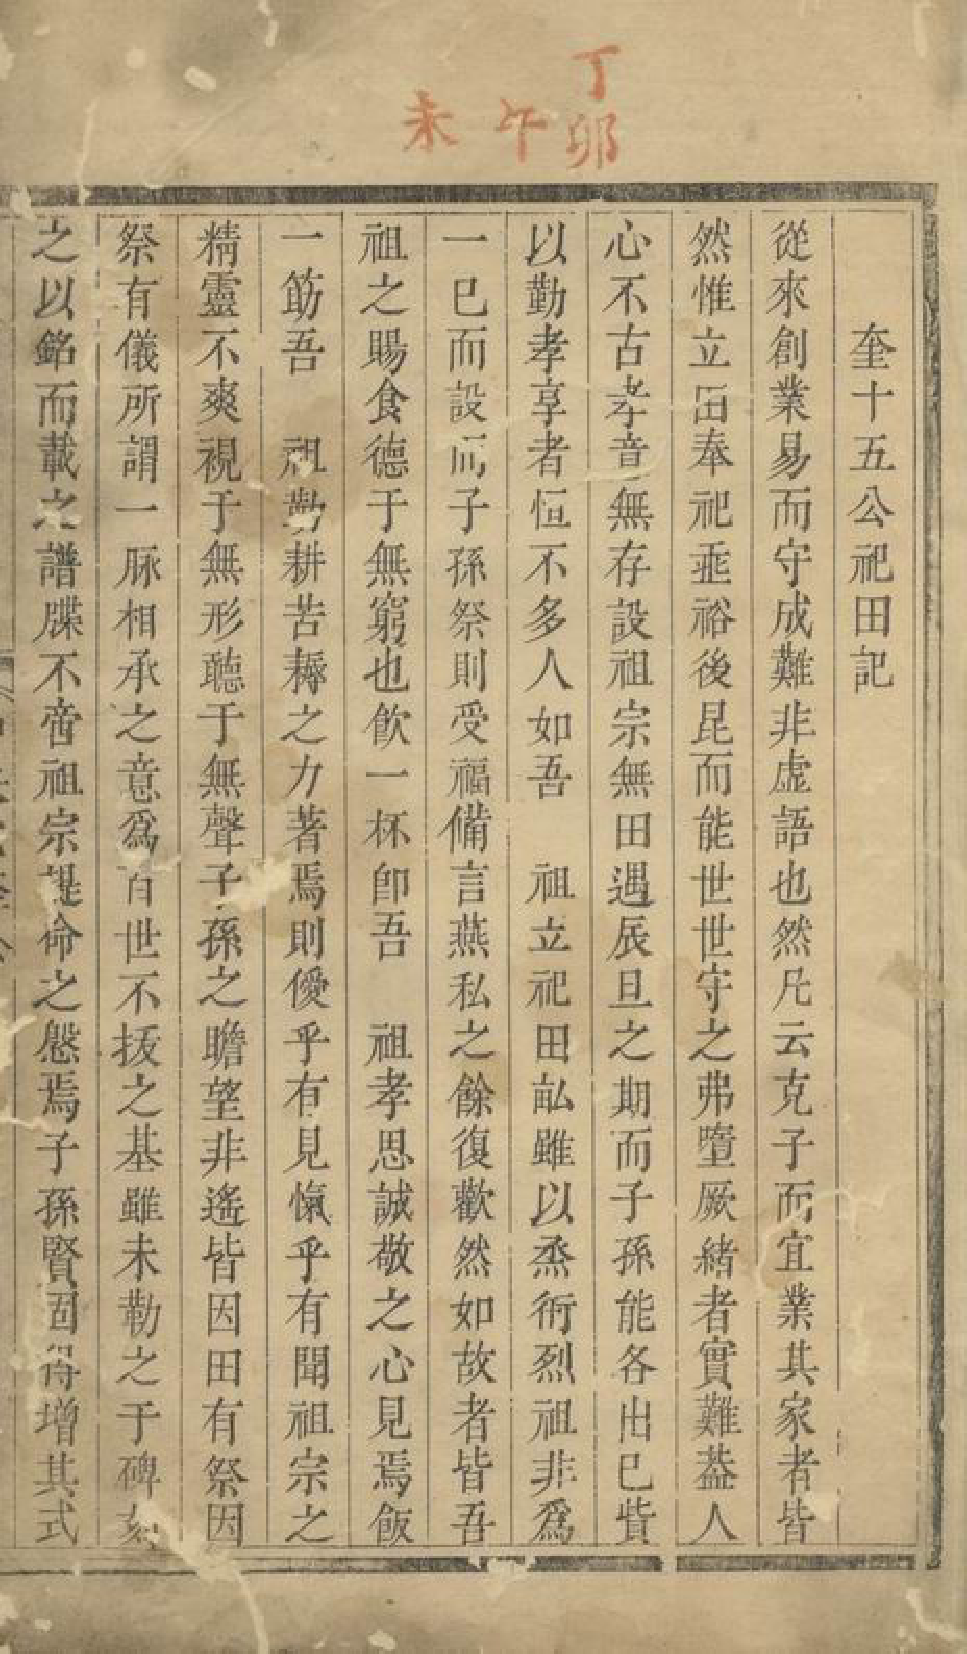 丁卯
午
未
奎十五公祀田記
從來創業易而守成難非虛語也然凡云克子而宜業其家者皆
然惟立田奉祀垂裕後昆而能世世守之弗墮厥緒者實難葢人
心不古孝音無存設祖宗無田遇辰旦之期而子孫能各出已貲
以勤孝享者恒不多人如吾　祖立祀田畝雖以烝衎烈祖非爲
一已而設而子孫祭則受福備言燕私之餘復歡然如故者皆吾
祖之賜食德于無窮也飲一杯卽吾　祖孝思誠敬之心見焉飯
一筯吾　祖勤耕苦耨之力著焉則僾乎有見愾乎有聞祖宗之
精靈不爽視于無形聽于無聲子孫之瞻望非遙皆因田有祭因
祭有儀所謂一脉相承之意爲百世不拔之基雖未勒之于碑刻
之以銘而載之譜牒不啻祖宗提命之慇焉子孫賢固得增其式